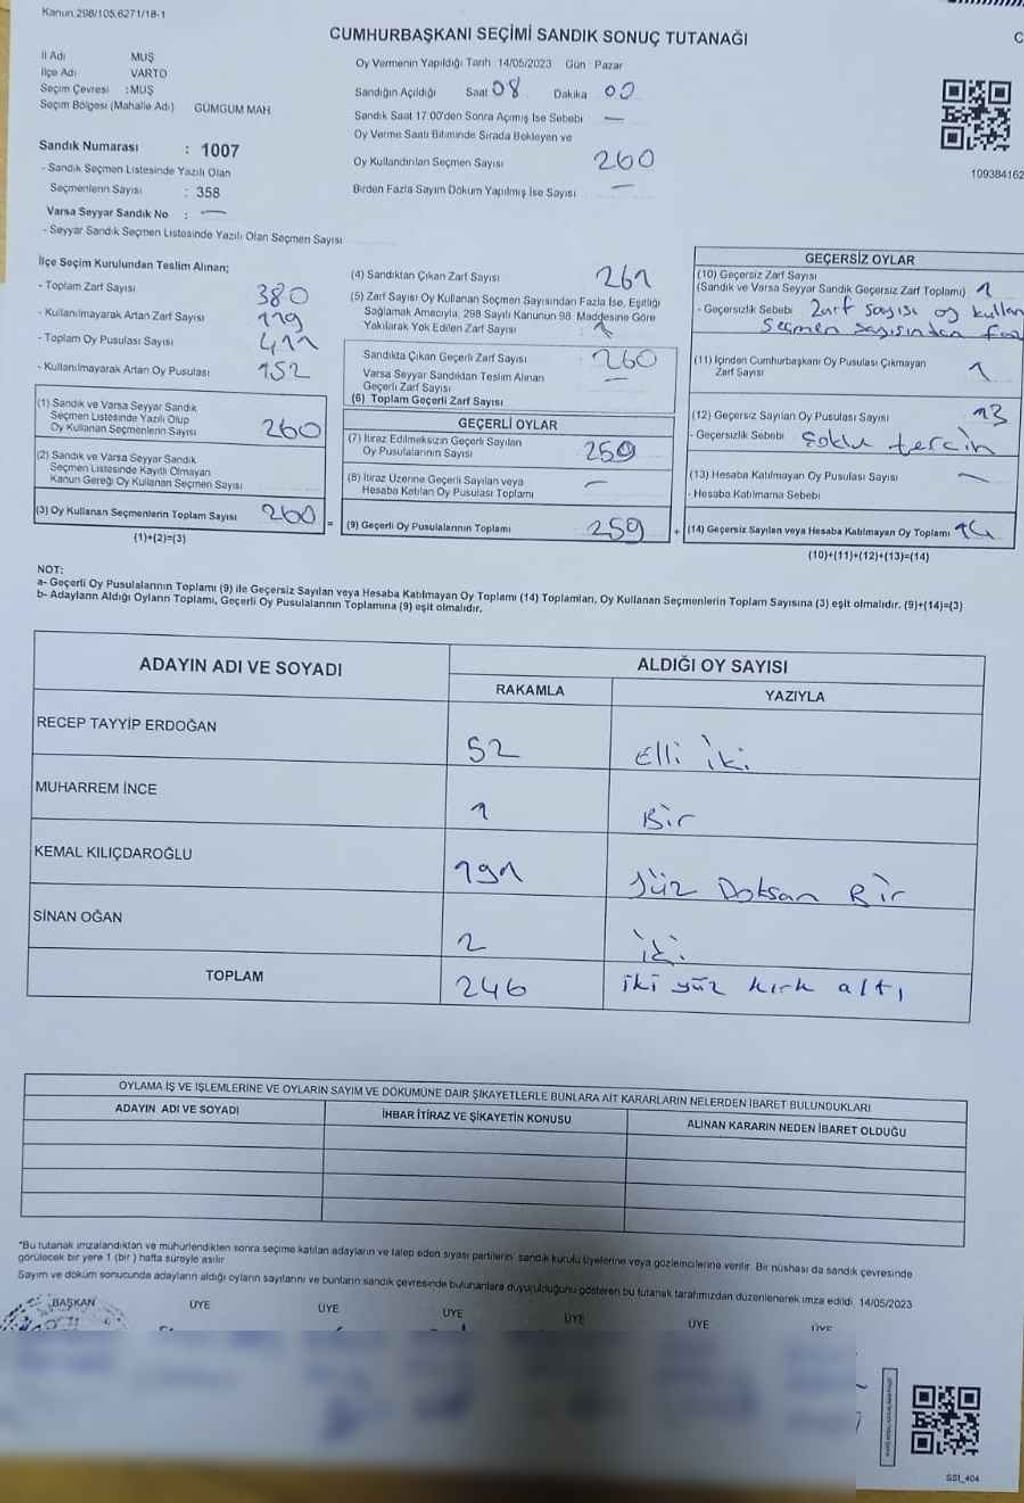 Kanun 298/105,6271/18-1
CUMHURBAŞKANI SEÇİMİ SANDIK SONUÇ TUTANAĞI
C
İl Adı MUŞ
İlçe Adı VARTO
Seçim Çevresi :MUŞ
Seçim Bölgesi (Mahalle Adı) GÜMGÜM MAH
Sandık Numarası : 1007
- Sandık Seçmen Listesinde Yazılı Olan
Seçmenlerin Sayısı : 358
Varsa Seyyar Sandık No : —
- Seyyar Sandık Seçmen Listesinde Yazılı Olan Seçmen Sayısı
Oy Vermenin Yapıldığı Tarih 14/05/2023 Gün Pazar
Sandığın Açıldığı Saat 08 Dakika 00
Sandık Saat 17:00'den Sonra Açmış İse Sebebi —
Oy Verme Saati Bitiminde Sırada Bekleyen ve
Oy Kullandırılan Seçmen Sayısı 260
Birden Fazla Sayım Döküm Yapılmış İse Sayısı —
109384162
İlçe Seçim Kurulundan Teslim Alınan;
- Toplam Zarf Sayısı 380
- Kullanılmayarak Artan Zarf Sayısı 119
- Toplam Oy Pusulası Sayısı 411
- Kullanılmayarak Artan Oy Pusulası 152
(1) Sandık ve Varsa Seyyar Sandık
Seçmen Listesinde Yazılı Olup
Oy Kullanan Seçmenlerin Sayısı 260
(2) Sandık ve Varsa Seyyar Sandık
Seçmen Listesinde Kayıtlı Olmayan
Kanun Gereği Oy Kullanan Seçmen Sayısı
(3) Oy Kullanan Seçmenlerin Toplam Sayısı 260 =
(1)+(2)=(3)
(4) Sandıktan Çıkan Zarf Sayısı 261
(5) Zarf Sayısı Oy Kullanan Seçmen Sayısından Fazla İse, Eşitliği
Sağlamak Amacıyla, 298 Sayılı Kanunun 98. Maddesine Göre
Yakılarak Yok Edilen Zarf Sayısı : 1
Sandıkta Çıkan Geçerli Zarf Sayısı 260
Varsa Seyyar Sandıktan Teslim Alınan
Geçerli Zarf Sayısı —
(6) Toplam Geçerli Zarf Sayısı
GEÇERLİ OYLAR
(7) İtiraz Edilmeksizin Geçerli Sayılan
Oy Pusulalarının Sayısı 259
(8) İtiraz Üzerine Geçerli Sayılan veya
Hesaba Katılan Oy Pusulası Toplamı —
(9) Geçerli Oy Pusulalarının Toplamı 259 +
GEÇERSİZ OYLAR
(10) Geçersiz Zarf Sayısı
(Sandık ve Varsa Seyyar Sandık Geçersiz Zarf Toplamı) 1
- Geçersizlik Sebebi Zarf sayısı oy kullan
Seçmen sayısından faz
(11) İçinden Cumhurbaşkanı Oy Pusulası Çıkmayan
Zarf Sayısı 1
(12) Geçersiz Sayılan Oy Pusulası Sayısı 13
- Geçersizlik Sebebi Çoklu tercih
(13) Hesaba Katılmayan Oy Pusulası Sayısı —
- Hesaba Katılmama Sebebi
(14) Geçersiz Sayılan veya Hesaba Katılmayan Oy Toplamı 14
(10)+(11)+(12)+(13)=(14)
NOT:
a- Geçerli Oy Pusulalarının Toplamı (9) ile Geçersiz Sayılan veya Hesaba Katılmayan Oy Toplamı (14) Toplamları, Oy Kullanan Seçmenlerin Toplam Sayısına (3) eşit olmalıdır. (9)+(14)=(3)
b- Adayların Aldığı Oyların Toplamı, Geçerli Oy Pusulalarının Toplamına (9) eşit olmalıdır.
ADAYIN ADI VE SOYADI
ALDIĞI OY SAYISI
RAKAMLA YAZIYLA
RECEP TAYYİP ERDOĞAN 52 Elli iki
MUHARREM İNCE 1 Bir
KEMAL KILIÇDAROĞLU 191 Yüz Doksan Bir
SİNAN OĞAN 2 iki
TOPLAM 246 iki yüz kırk altı
OYLAMA İŞ VE İŞLEMLERİNE VE OYLARIN SAYIM VE DÖKÜMÜNE DAİR ŞİKAYETLERLE BUNLARA AİT KARARLARIN NELERDEN İBARET BULUNDUKLARI
ADAYIN ADI VE SOYADI İHBAR İTİRAZ VE ŞİKAYETİN KONUSU ALINAN KARARIN NEDEN İBARET OLDUĞU
*Bu tutanak imzalandıktan ve mühürlendikten sonra seçime katılan adayların ve talep eden siyasi partilerin sandık kurulu üyelerine veya gözlemcilerine verilir. Bir nüshası da sandık çevresinde
görülecek bir yere 1 (bir) hafta süreyle asılır
Sayım ve döküm sonucunda adayların aldığı oyların sayılarını ve bunların sandık çevresinde bulunanlara duyurulduğunu gösteren bu tutanak tarafımızdan düzenlenerek imza edildi. 14/05/2023
BAŞKAN ÜYE ÜYE ÜYE ÜYE ÜYE ÜYE
SS1_404